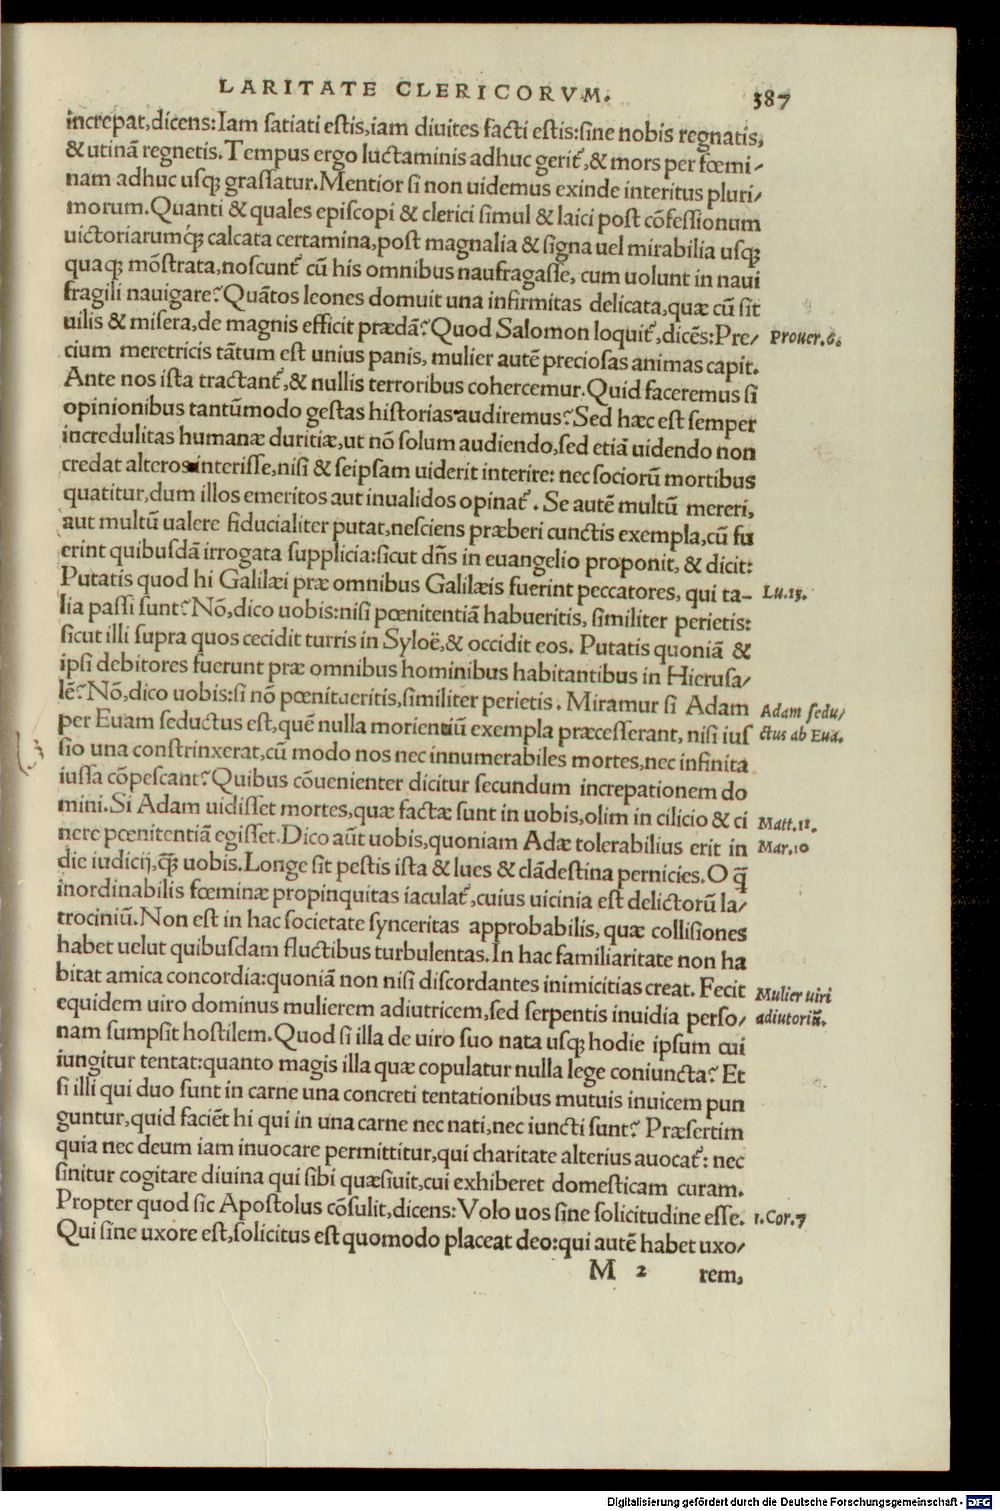 LARITATE CLERICORVM. 387
increpat,dicens:Iam ſatiati eſtis,iam diuites facti eſtis:ſine nobis regnatis,
& utinã regnetis.Tempus ergo luctaminis adhuc gerit᷑,& mors per fœmi/
nam adhuc uſq; graſſatur.Mentior ſi non uidemus exinde interitus pluri/
morum.Quanti & quales epiſcopi & clerici ſimul & laici poſt cõfeſſionum
uictoriarumq́; calcata certamina,poſt magnalia & ſigna uel mirabilia uſq;
quaq; mõſtrata,noſcunt᷑ cũ his omnibus naufragaſſe, cum uolunt in naui
fragili nauigare? Quãtos leones domuit una infirmitas delicata,quæ cũ ſit
uilis & miſera,de magnis efficit prædã? Quod Salomon loquit᷑,dicẽs:Pre/ Prouer.6.
cium meretricis tãtum eſt unius panis, mulier autẽ precioſas animas capit.
Ante nos iſta tractant᷑,& nullis terroribus cohercemur.Quid faceremus ſi
opinionibus tantũmodo geſtas hiſtorias audiremus? Sed hæc eſt ſemper
incredulitas humanæ duritiæ,ut nõ ſolum audiendo,ſed etiã uidendo non
credat alteros interiſſe,niſi & ſeipſam uiderit interire: nec ſociorũ mortibus
quatitur,dum illos emeritos aut inualidos opinat᷑. Se autẽ multũ mereri,
aut multũ ualere fiducialiter putat,neſciens præberi cunctis exempla,cũ fu
erint quibuſdã irrogata ſupplicia:ſicut dñs in euangelio proponit, & dicit:
Putatis quod hi Galilæi præ omnibus Galilæis fuerint peccatores, qui ta- Lu.13.
lia paſſi ſunt? Nõ,dico uobis:niſi pœnitentiã habueritis, ſimiliter perietis:
ſicut illi ſupra quos cecidit turris in Syloë,& occidit eos. Putatis quoniã &
ipſi debitores fuerunt præ omnibus hominibus habitantibus in Hieruſa/
lẽ? Nõ,dico uobis:ſi nõ pœnitueritis,ſimiliter perietis. Miramur ſi Adam Adam ſedu/
per Euam ſeductus eſt,quẽ nulla morientiũ exempla præceſſerant, niſi iuſ ctus ab Eua.
ſio una conſtrinxerat,cũ modo nos nec innumerabiles mortes,nec infinita
iuſſa cõpeſcant? Quibus cõuenienter dicitur ſecundum increpationem do
mini.Si Adam uidiſſet mortes,quæ factæ ſunt in uobis,olim in cilicio & ci Matt.11.
nere pœnitentiã egiſſet.Dico aũt uobis,quoniam Adæ tolerabilius erit in Mar.10
die iudicij,q̃; uobis.Longe ſit peſtis iſta & lues & clãdeſtina pernicies.O q̃
inordinabilis fœminæ propinquitas iaculat᷑,cuius uicinia eſt delictorũ la/
trociniũ.Non eſt in hac ſocietate ſynceritas approbabilis, quæ colliſiones
habet uelut quibuſdam fluctibus turbulentas.In hac familiaritate non ha
bitat amica concordia:quoniã non niſi diſcordantes inimicitias creat. Fecit Mulier uiri
equidem uiro dominus mulierem adiutricem,ſed ſerpentis inuidia perſo/ adiutoriũ.
nam ſumpſit hoſtilem.Quod ſi illa de uiro ſuo nata uſq; hodie ipſum cui
iungitur tentat:quanto magis illa quæ copulatur nulla lege coniuncta? Et
ſi illi qui duo ſunt in carne una concreti tentationibus mutuis inuicem pun
guntur,quid faciẽt hi qui in una carne nec nati,nec iuncti ſunt? Præſertim
quia nec deum iam inuocare permittitur,qui charitate alterius auocat᷑: nec
ſinitur cogitare diuina qui ſibi quæſiuit,cui exhiberet domeſticam curam.
Propter quod ſic Apoſtolus cõſulit,dicens:Volo uos ſine ſolicitudine eſſe. 1.Cor.7
Qui ſine uxore eſt,ſolicitus eſt quomodo placeat deo:qui autẽ habet uxo/
M 2 rem,
Digitalisierung gefördert durch die Deutsche Forschungsgemeinschaft - DFG